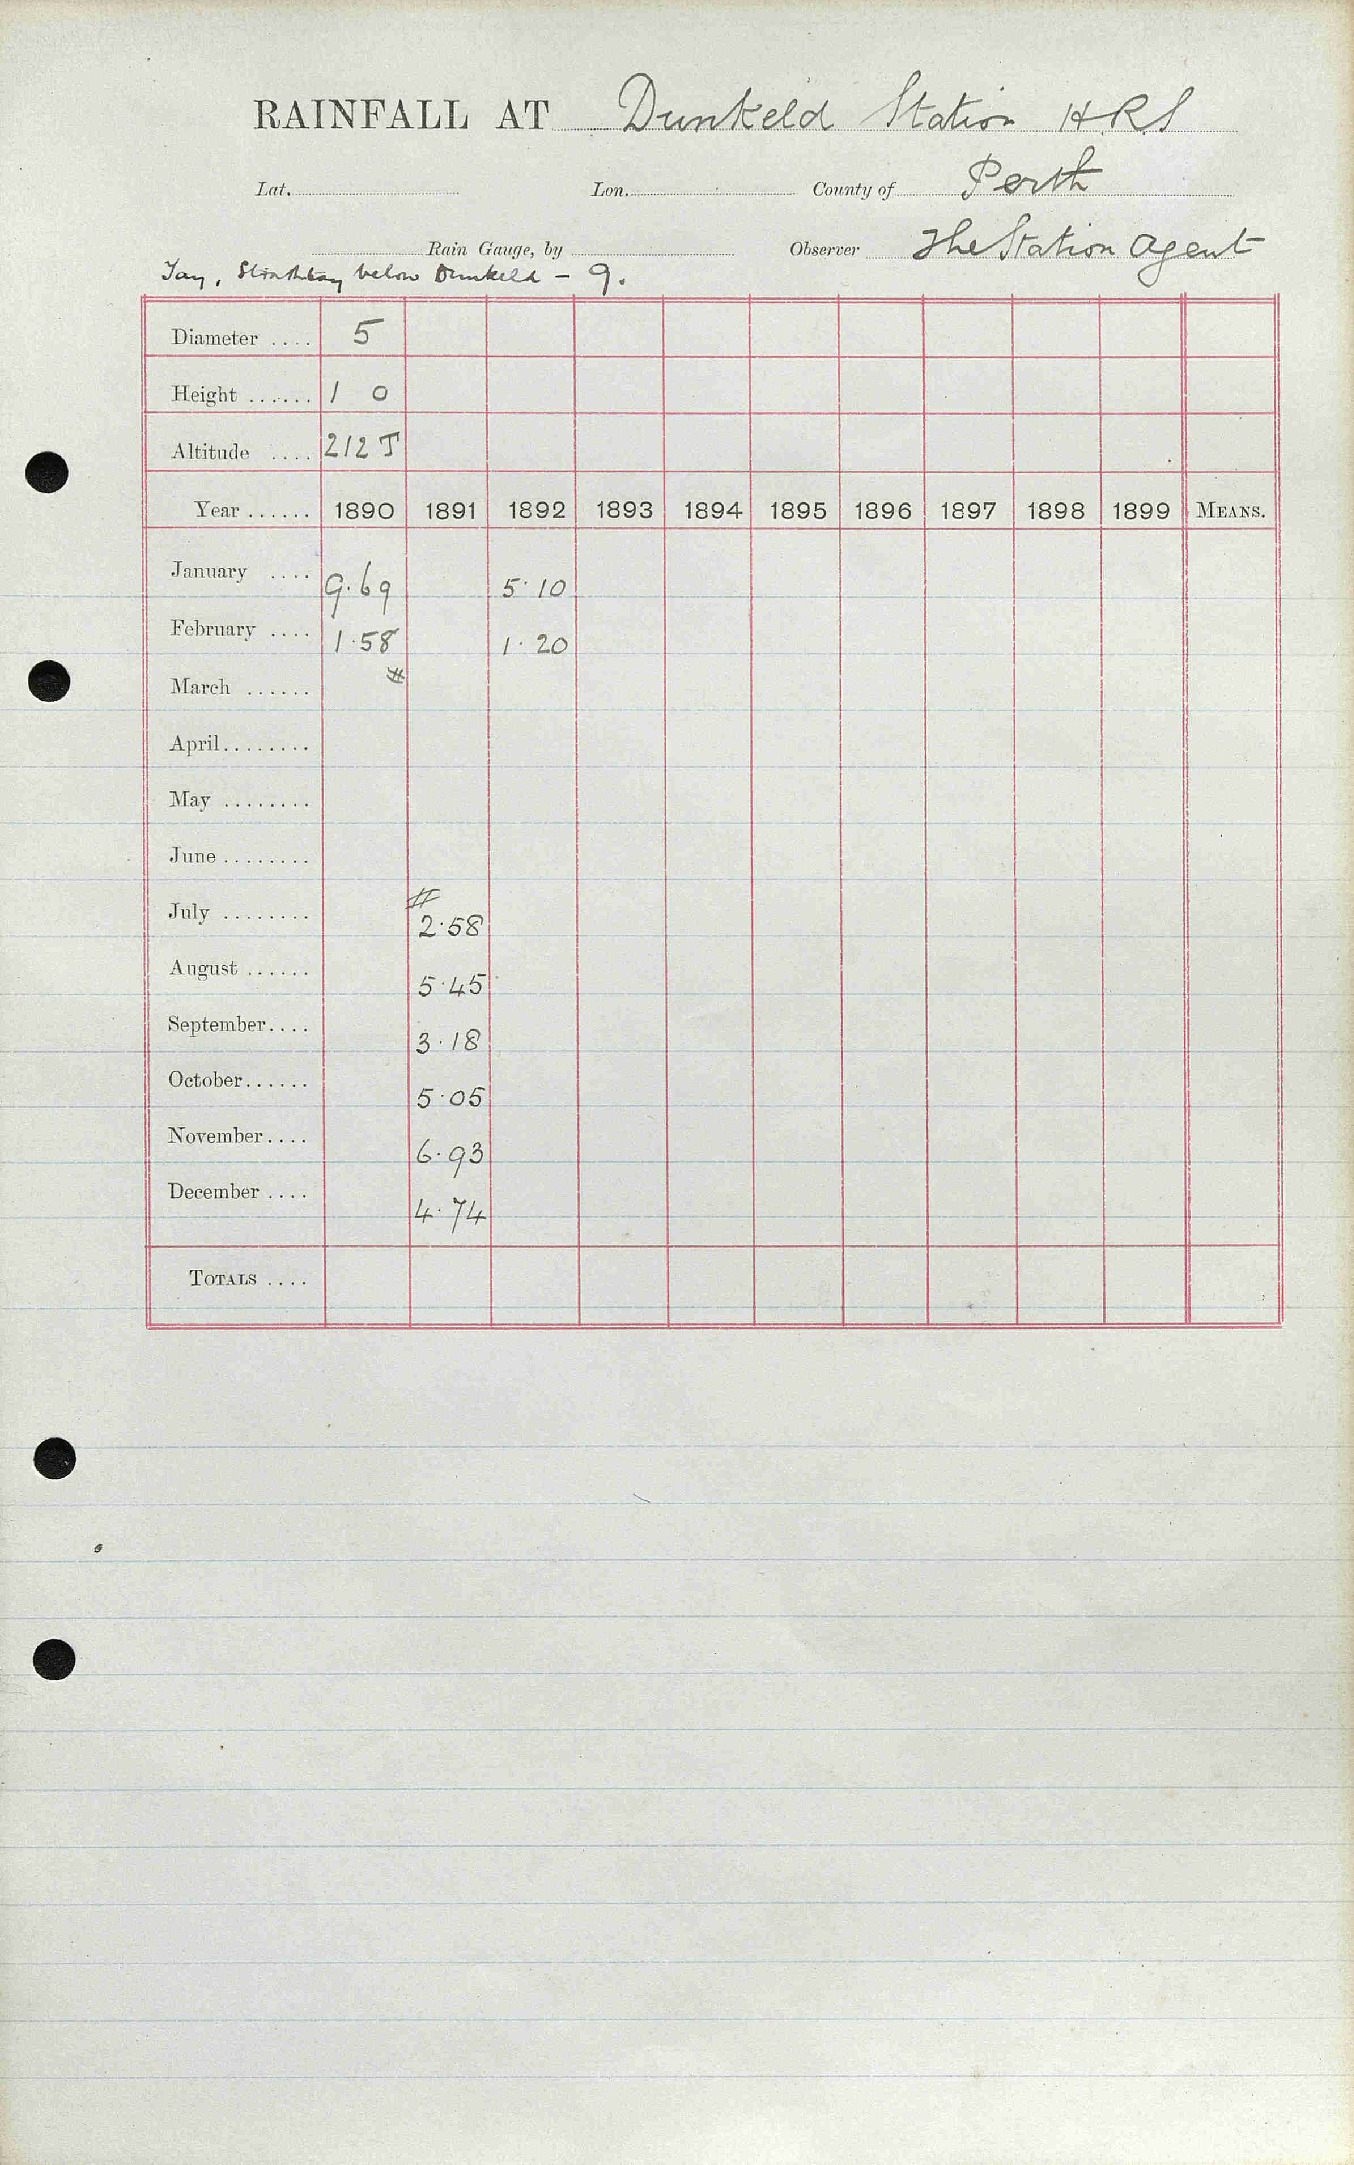 RAINFALL AT Dunkeld Station H.R.S
Lat. Lon. County of Perth
Rain Gauge, by Observer The Station Agent
Tay, Strathtay below Dunkeld - 9.
Diameter .... 5
Height ...... 1 0
Altitude .... 212 T
Year ...... 1890 1891 1892 1893 1894 1895 1896 1897 1898 1899 MEANS.
January .... 9.69 5.10
February .... 1.58 1.20
March ...... #
April........
May ........
June ........
July ........ # 2.58
August ...... 5.45
September.... 3.18
October...... 5.05
November.... 6.93
December .... 4.74
TOTALS ....